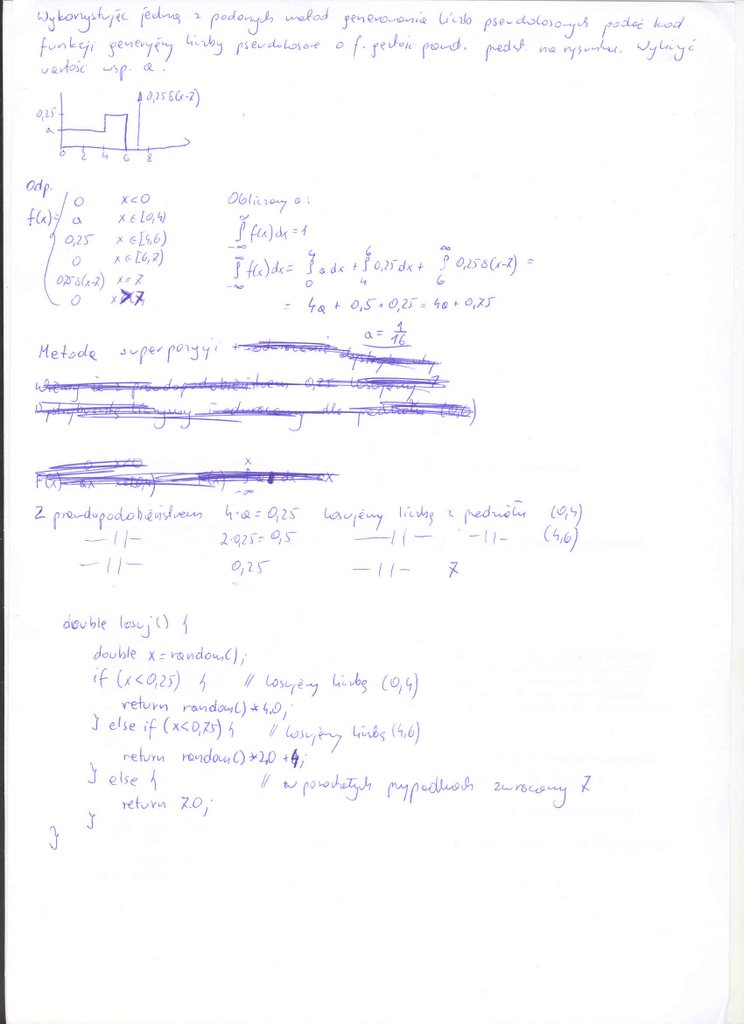 Wykorzystując jedną z podanych metod generowania liczb pseudolosowych podać kod
funkcji generującej liczby pseudolosowe o f. gęstości pawd. przedst. na rysunku. Wyliczyć
wartość wsp. a.
0,25δ(x-7)
0,25
a
0 2 4 6 8
Odp.
f(x)=
0 x<0
a x∈[0,4)
0,25 x∈[4,6)
0 x∈[6,7)
0,25δ(x-7) x=7
0 x>7
Obliczamy a:
∫_{-∞}^{∞} f(x)dx=1
∫_{-∞}^{∞} f(x)dx= ∫_0^4 a dx + ∫_4^6 0,25dx + ∫_6^∞ 0,25δ(x-7) =
= 4a + 0,5 + 0,25 = 4a + 0,75
a = 1/16
Metoda superpozycji
Z prawdopodobieństwem 4·a=0,25 losujemy liczbę z przedziału (0,4)
—11— 2·0,25=0,5 —11— —11— (4,6)
—11— 0,25 —11— 7
double losuj() {
double x=random();
if (x<0,25) { // losujemy liczbę (0,4)
return random()*4.0;
} else if (x<0,75) { // losujemy liczbę (4,6)
return random()*2.0+4;
} else { // w pozostałych przypadkach zwracamy 7
return 7.0;
}
}